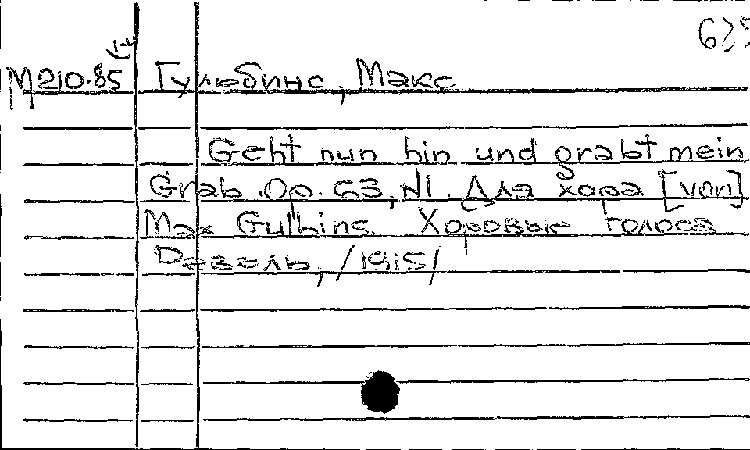 М210.85 Гульбинс, Макс
Geht nun hin und grabt mein
Grab. Op. 63, N1. Для хора [von]
Max Gulbins. Хоровые голоса
Ревель, /1915/